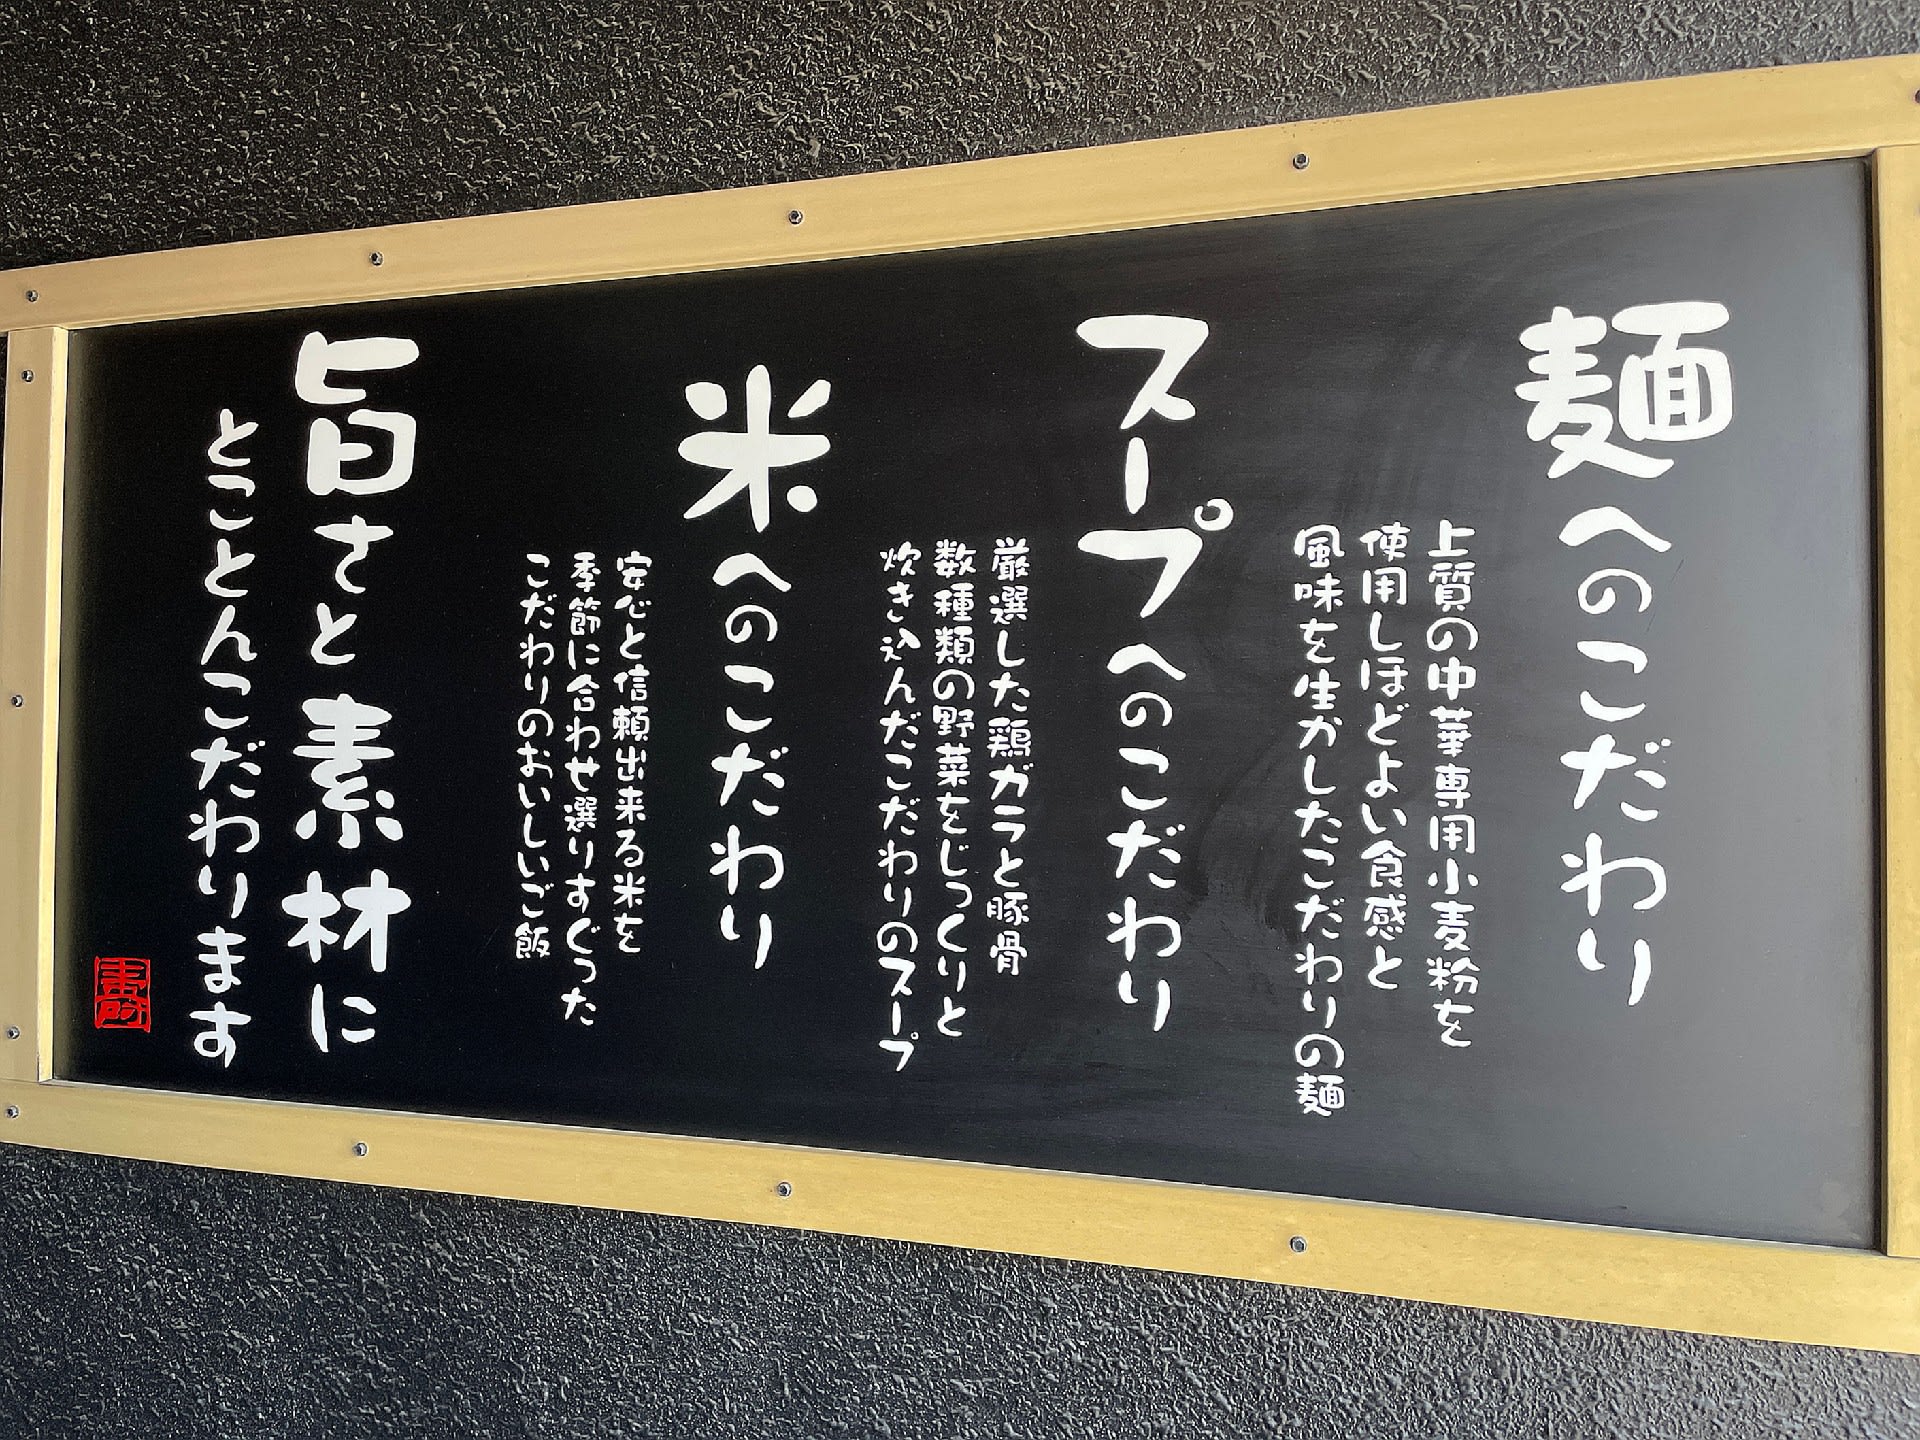 麺へのこだわり
上質の中華専用小麦粉を
使用しほどよい食感と
風味を生かしたこだわりの麺
スープへのこだわり
厳選した鶏ガラと豚骨
数種類の野菜をじっくりと
炊き込んだこだわりのスープ
米へのこだわり
安心と信頼出来る米を
季節に合わせ選りすぐった
こだわりのおいしいご飯
旨さと素材に
とことんこだわります